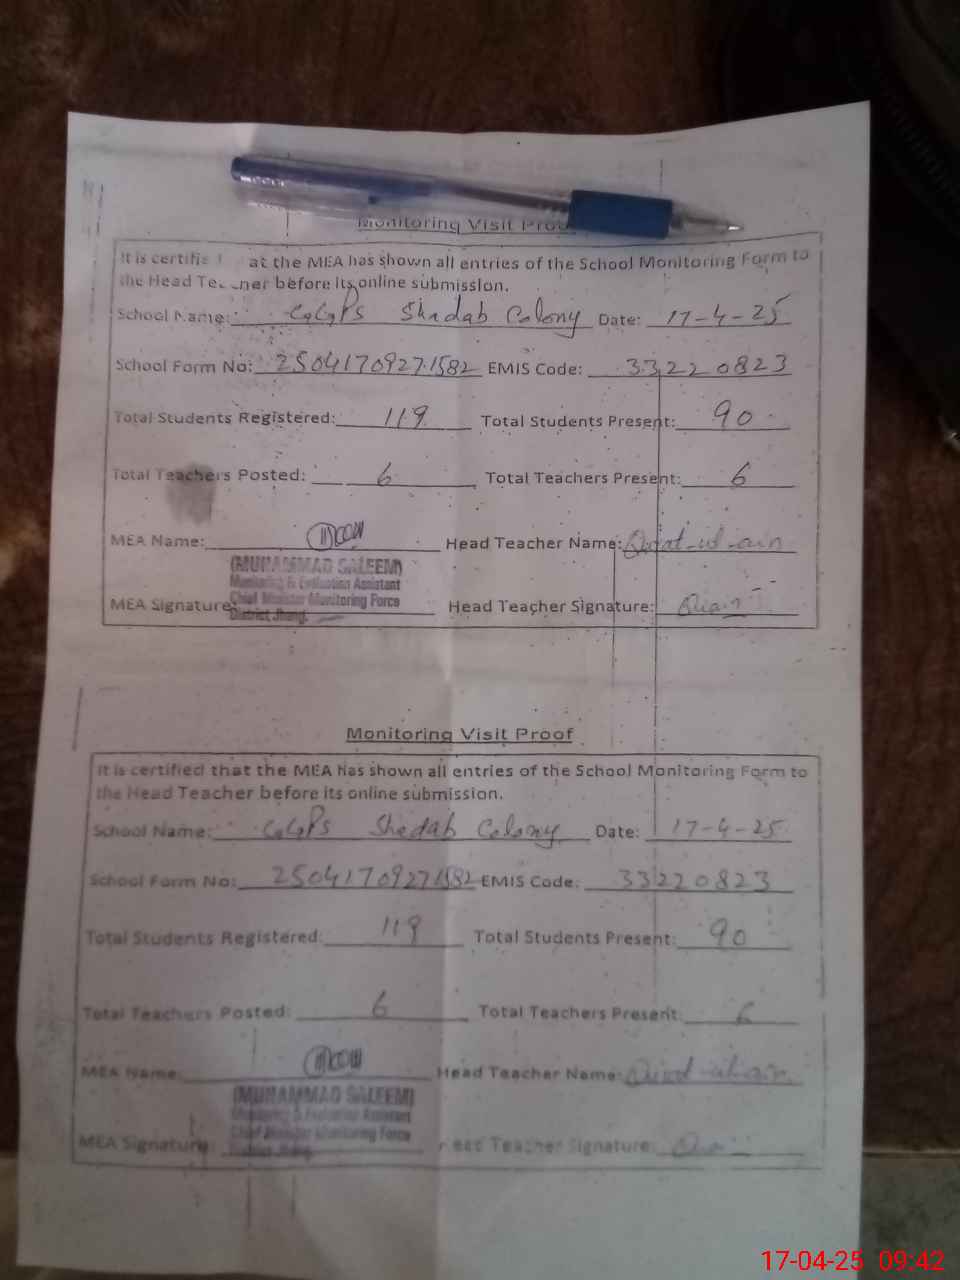 Monitoring Visit Proof
It is certifie at the MEA has shown all entries of the School Monitoring Form to
the Head Te ner before its online submission.
School Name: GGPS Shadab Colony Date: 17-4-25
School Form No: 25041709271582 EMIS Code: 33220823
Total Students Registered: 119 Total Students Present: 90
Total Teachers Posted: 6 Total Teachers Present: 6
MEA Name: Head Teacher Name: Qurat-ul-ain
(MUHAMMAD SALEEM)
Monitoring & Evaluation Assistant
Chief Minister Monitoring Force
MEA Signature: Head Teacher Signature:
District Jhang.
Monitoring Visit Proof
It is certified that the MEA has shown all entries of the School Monitoring Form to
the Head Teacher before its online submission.
School Name: GGPS Shedab Colony Date: 17-4-25
School Form No: 25041709271582 EMIS Code: 33220823
Total Students Registered: 119 Total Students Present: 90
Total Teachers Posted: 6 Total Teachers Present: 6
MEA Name: Head Teacher Name: Qurat-ul-ain
(MUHAMMAD SALEEM)
Monitoring & Evaluation Assistant
Chief Minister Monitoring Force
MEA Signature: ead Teacher Signature:
District Jhang.
17-04-25 09:42